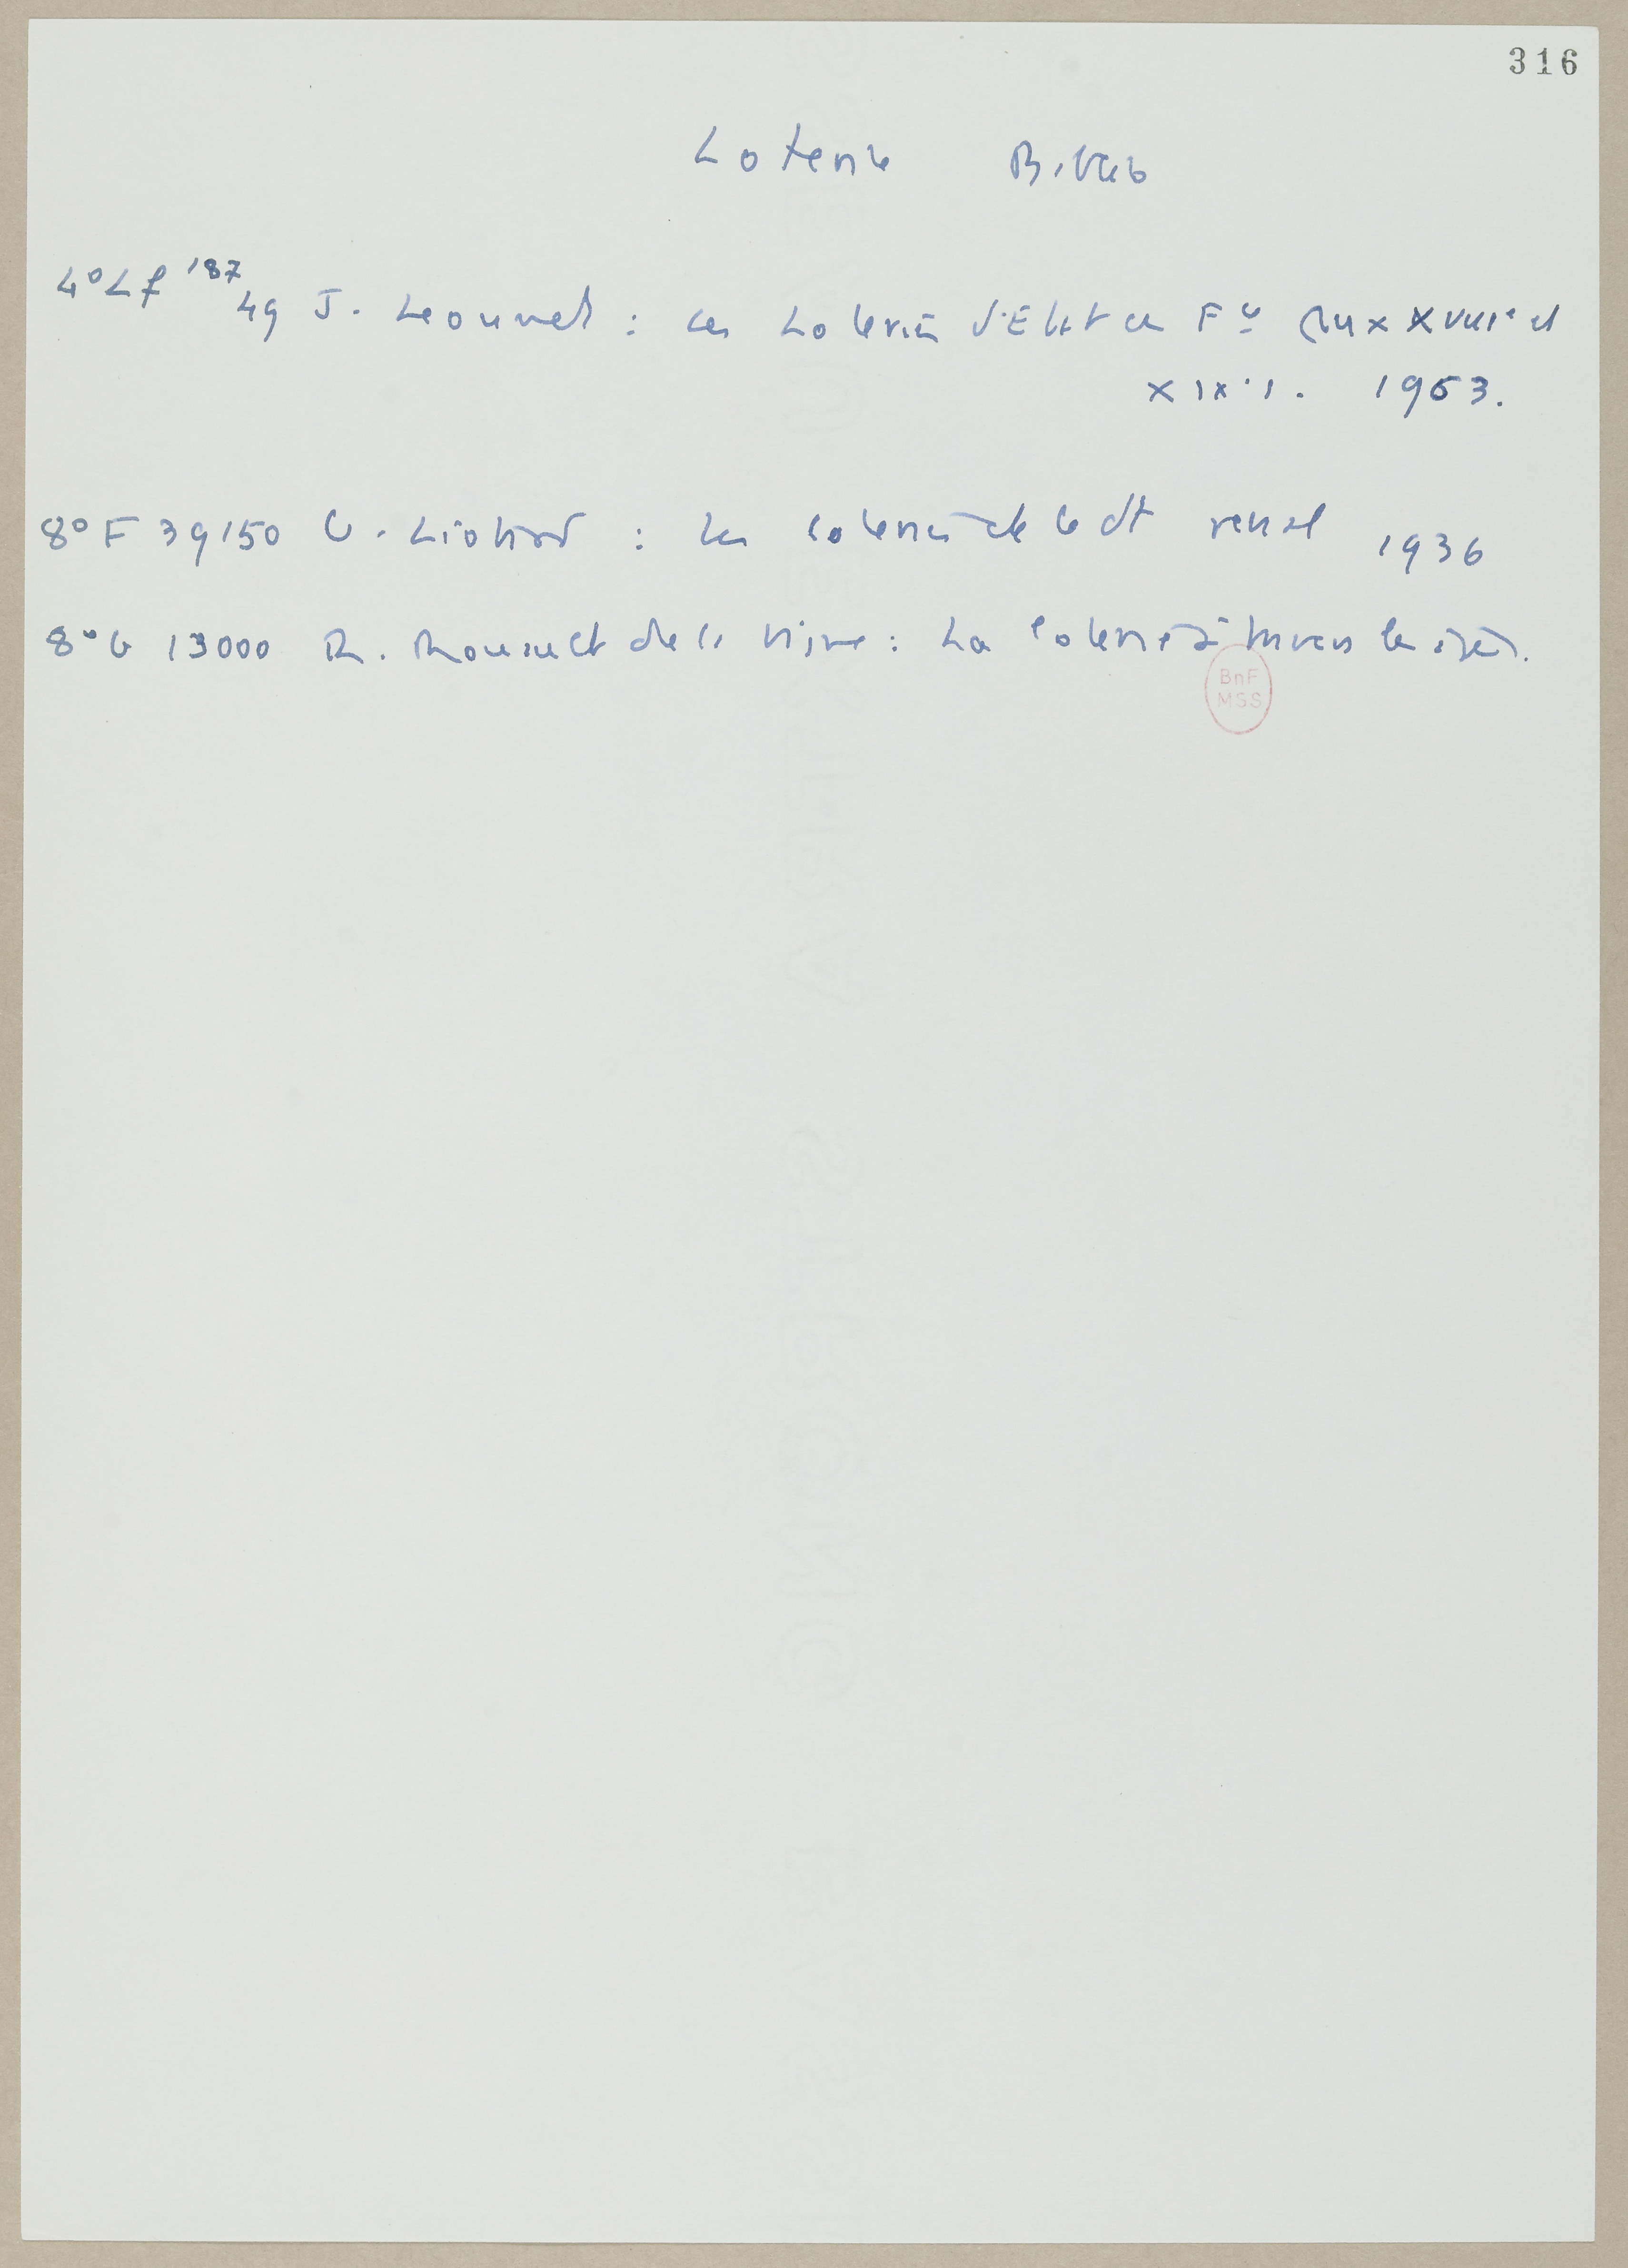 316
Loterie Biblio
4° Lf 187 49 J. Leonnet : Les Loteries d'Etat en Fce aux XVIIIe et
XIXe s. 1963.
8° F 39150 G. Liotard : Les loteries et le dt pénal 1936
8° G 13000 R. Rouault de la Vigne : La loterie à travers les âges.
BnF
MSS